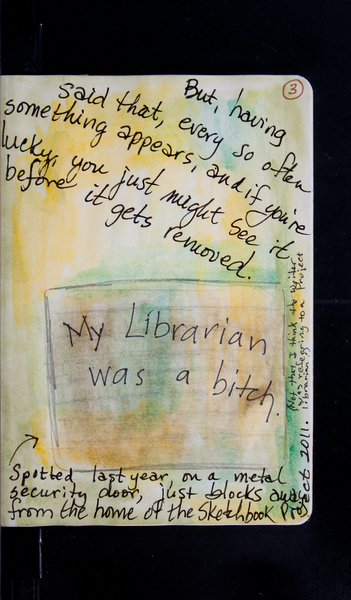 3
But, having
said that, every so often
something appears, and if you're
lucky, you just might see it
before it
gets removed.
My Librarian
was a bitch.
Spotted last year, on a metal
security door, just blocks away
from the home of the Sketchbook Project 2011.
(Not that I think the writer
was referring to a Project
librarian